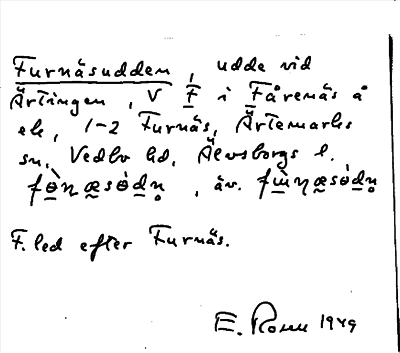 Furnäsudden, udde vid
Ärtingen, V F i Fårenäs å
ek, 1-2 Furnäs, Ärtemarks
sn, Vedbo hd, Älvsborgs l.
, äv.
F. led efter Furnäs.
E. 1949